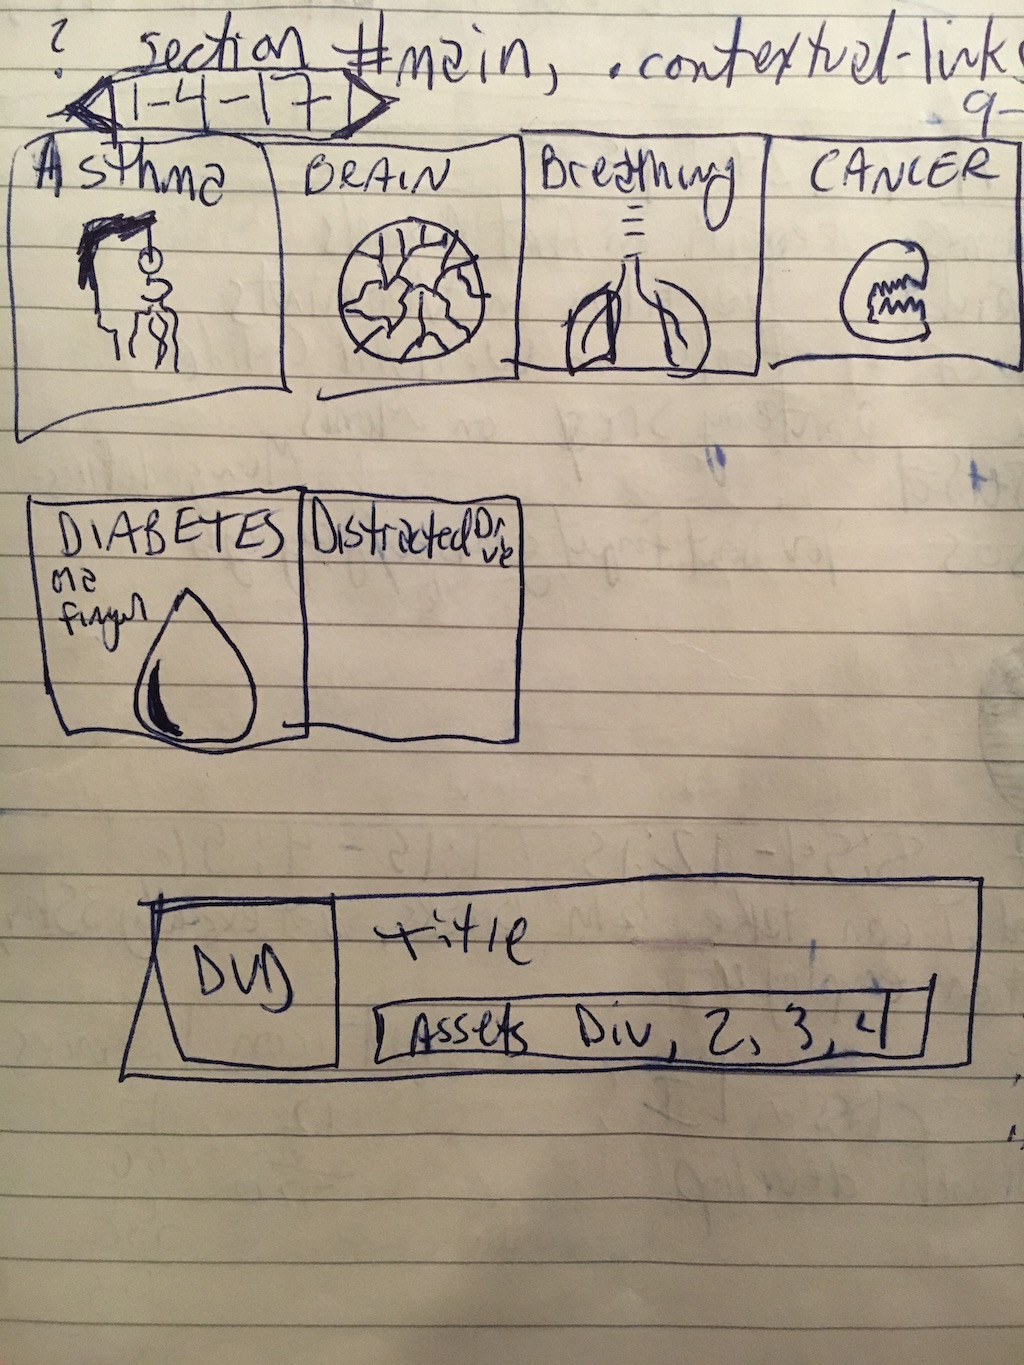 ? section #main, .contextual-links
1-4-17-
9-
Asthma
BRAIN
Breathing
CANCER
DIABETES
Distracted Drive
on a
finger
DVD
title
Assets Div, 2, 3, 4